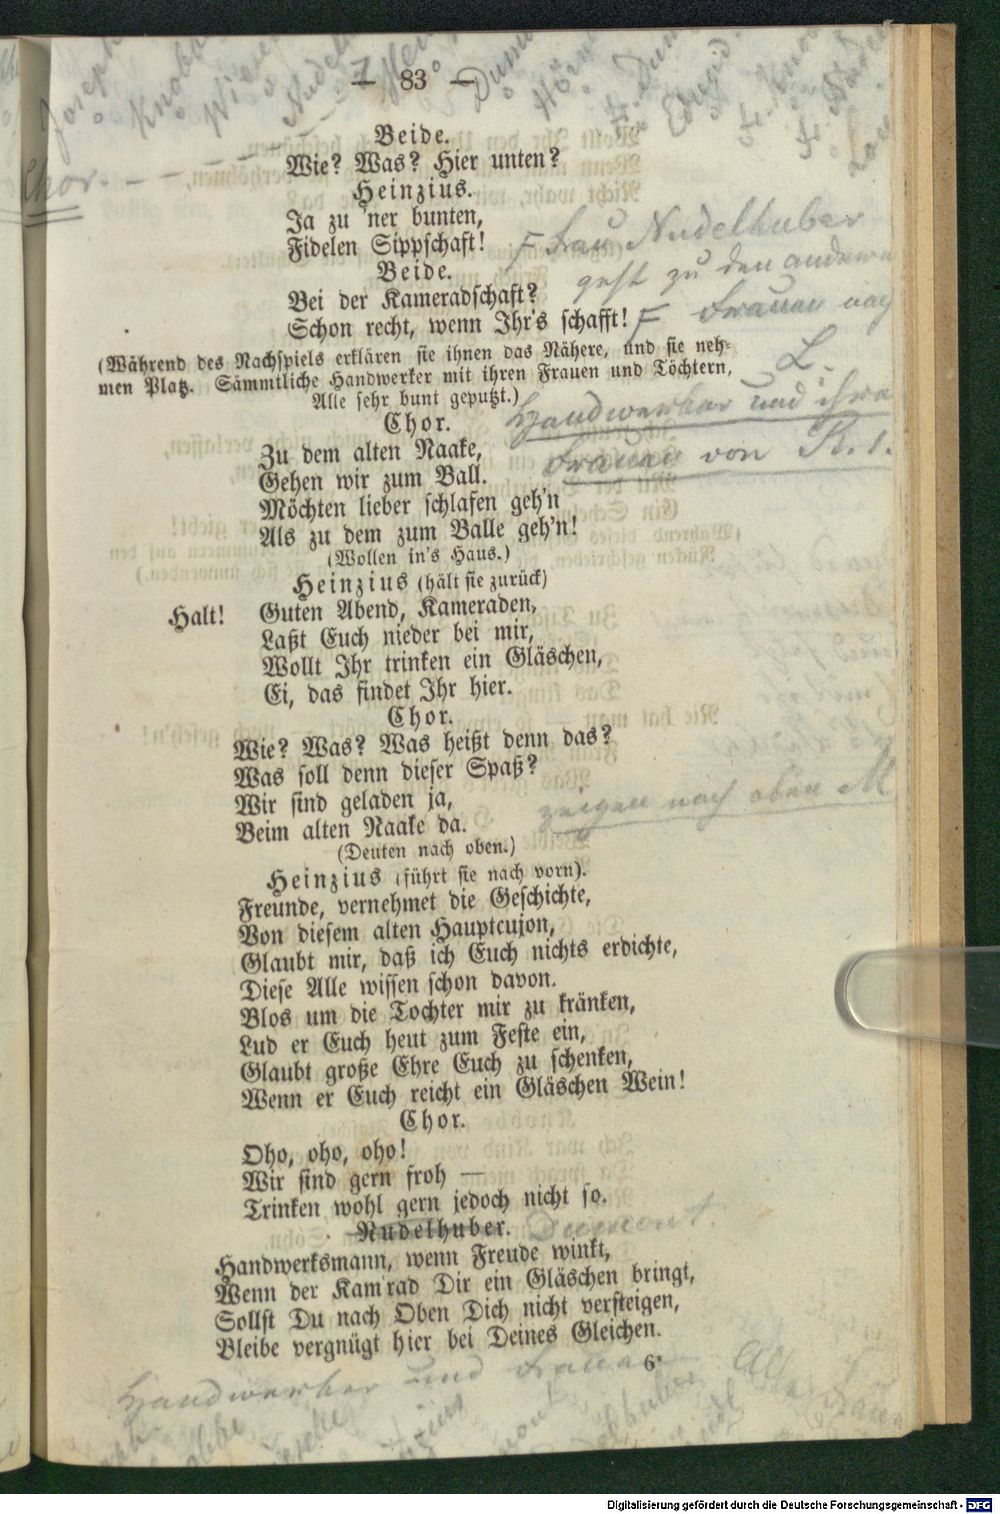 — 83 —
Chor.
Beide.
Wie? Was? Hier unten?
Heinzius.
Ja zu 'ner bunten,
Fidelen Sippschaft!
F Frau Nudelhuber
Beide.
geht zu den anderen
Bei der Kameradschaft?
Frauen nach
Schon recht, wenn Ihr's schafft! F
L.
(Während des Nachspiels erklären sie ihnen das Nähere, und sie neh-
men Platz. Sämmtliche Handwerker mit ihren Frauen und Töchtern,
Alle sehr bunt geputzt.)
Handwerker und ihre
Chor.
Frauen von R. 1.
Zu dem alten Naake,
Gehen wir zum Ball.
Möchten lieber schlafen geh'n
Als zu dem zum Balle geh'n!
(Wollen in's Haus.)
Heinzius (hält sie zurück)
Halt! Guten Abend, Kameraden,
Laßt Euch nieder bei mir,
Wollt Ihr trinken ein Gläschen,
Ei, das findet Ihr hier.
Chor.
Wie? Was? Was heißt denn das?
Was soll denn dieser Spaß?
Wir sind geladen ja,
zeigen nach oben M
Beim alten Naake da.
(Deuten nach oben.)
Heinzius (führt sie nach vorn).
Freunde, vernehmet die Geschichte,
Von diesem alten Hauptcujon,
Glaubt mir, daß ich Euch nichts erdichte,
Diese Alle wissen schon davon.
Blos um die Tochter mir zu kränken,
Lud er Euch heut zum Feste ein,
Glaubt große Ehre Euch zu schenken,
Wenn er Euch reicht ein Gläschen Wein!
Chor.
Oho, oho, oho!
Wir sind gern froh —
Trinken wohl gern jedoch nicht so.
Nudelhuber. Dumont.
Handwerksmann, wenn Freude winkt,
Wenn der Kam'rad Dir ein Gläschen bringt,
Sollst Du nach Oben Dich nicht versteigen,
Bleibe vergnügt hier bei Deines Gleichen.
6*
Handwerker und Frauen
Digitalisierung gefördert durch die Deutsche Forschungsgemeinschaft - DFG